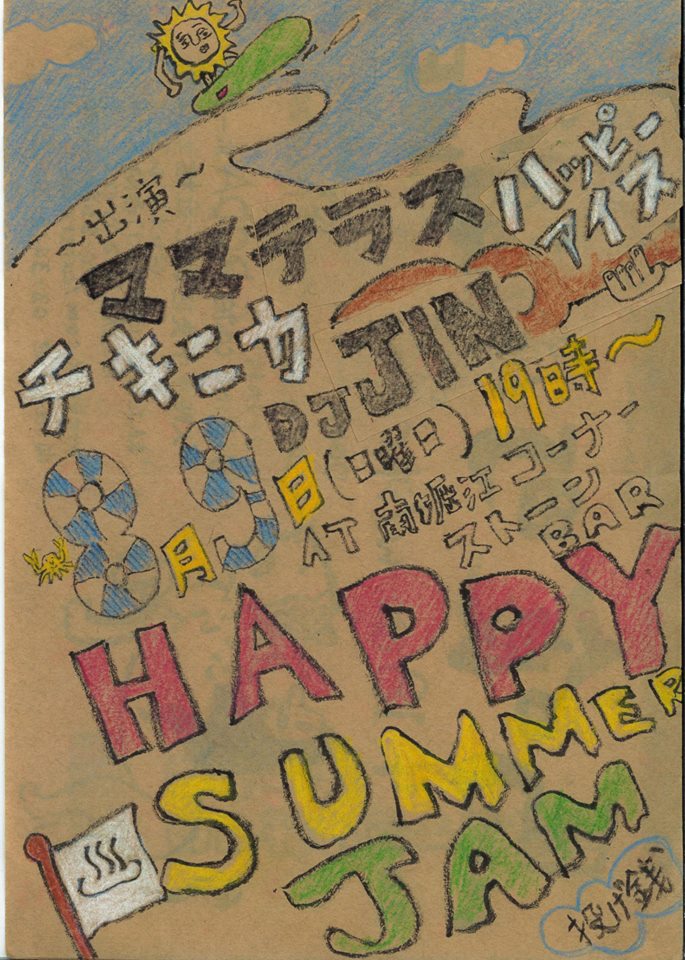 〜出演〜
ママテラス
ハッピー
アイス
チキニカ
DJ JIN
8月9日(日曜日)19時〜
AT 南堀江 コーナー
ストーン
BAR
HAPPY
SUMMER
JAM
投げ銭